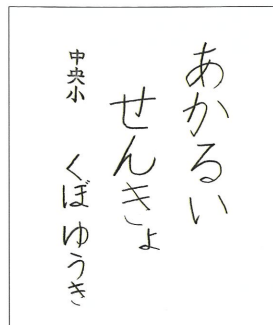 あかるい
せんきょ
中央小
くぼゆうき